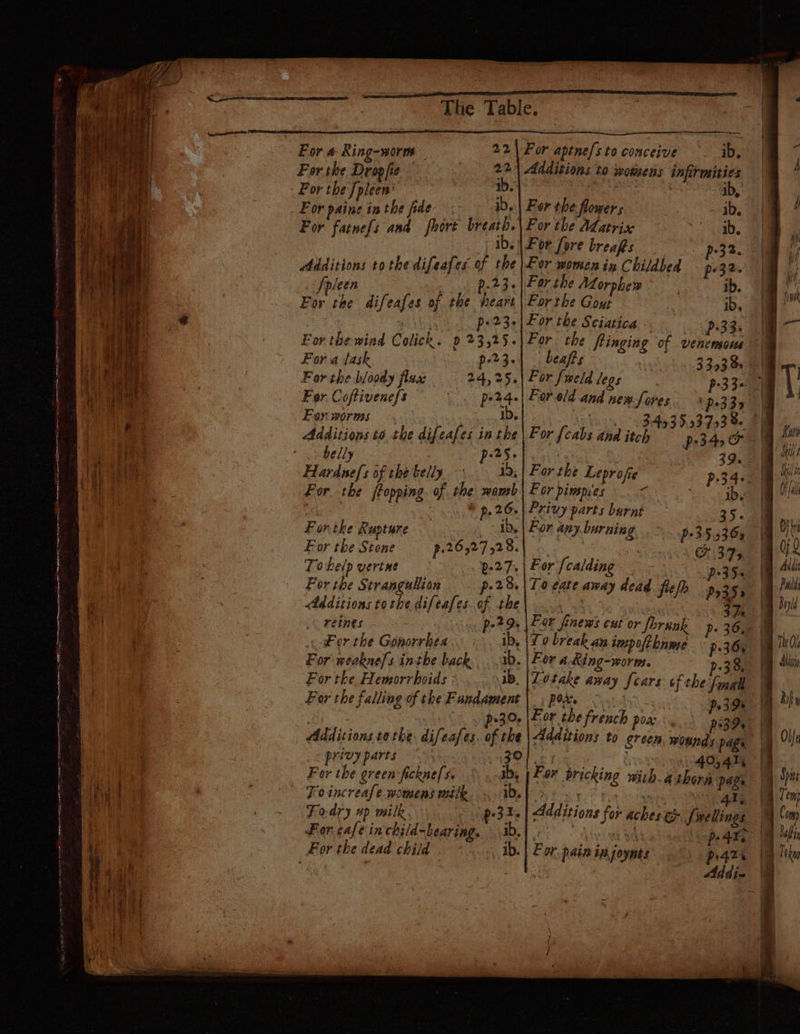 The Table.
For a Ring-worm 22
For the Dropsie 22
For the spleen ib.
For paine in the side ib.
For fatness and short breath.
ib.
Additions to the diseases of the
spleen p.23.
For the diseases of the heart
p.23.
For the wind Colick. p 23,25.
For a lask p.23.
For the bloody flux 24,25.
For Costiveness p.24.
For worms ib.
Additions to the diseases in the
belly p.25.
Hardness of the belly ib,
For the stopping of the womb
p.26.
For the Rupture ib.
For the Stone p.26,27,28.
To help vertue p.27.
For the Strangullion p.28.
Additions to the diseases of the
reines p.29.
For the Gonorrhea ib.
For weakness in the back ib.
For the Hemorrhoids ib.
For the falling of the Fundament
p.30.
Additions to the diseases of the
privy parts 30
For the green sickness. ib.
To increase womens milk. ib.
To dry up milk. p.31.
For ease in child-bearing. ib.
For the dead child ib.
For aptness to conceive ib.
Additions to womens infirmities
ib,
For the flowers ib.
For the Matrix ib.
For sore breasts p.32.
For women in Childbed p.32.
For the Morphew ib.
For the Gout ib.
For the Sciatica p.33.
For the stinging of venemous
beasts 33,38.
For sweld legs p.33.
For old and new sores p.33,
34,35,37,38.
For scabs and itch p.34, &
39.
For the Leprosie p.34.
For pimpies ib.
Privy parts burnt 35.
For any burning p.35,36,
& 37.
For scalding p.35.
To eate away dead flesh p.35,
37.
For sinews cut or shrunk p.36.
To break an imposthnme p.36.
For a Ring-worm. p.38.
To take away scars of the small
pox. p.39.
For the french pox p.39.
Additions to green wounds page
40,41,
For pricking with a thorn page
41.
Additions for aches & swellings
p.41.
For pain in joynts p.42.
Addi-